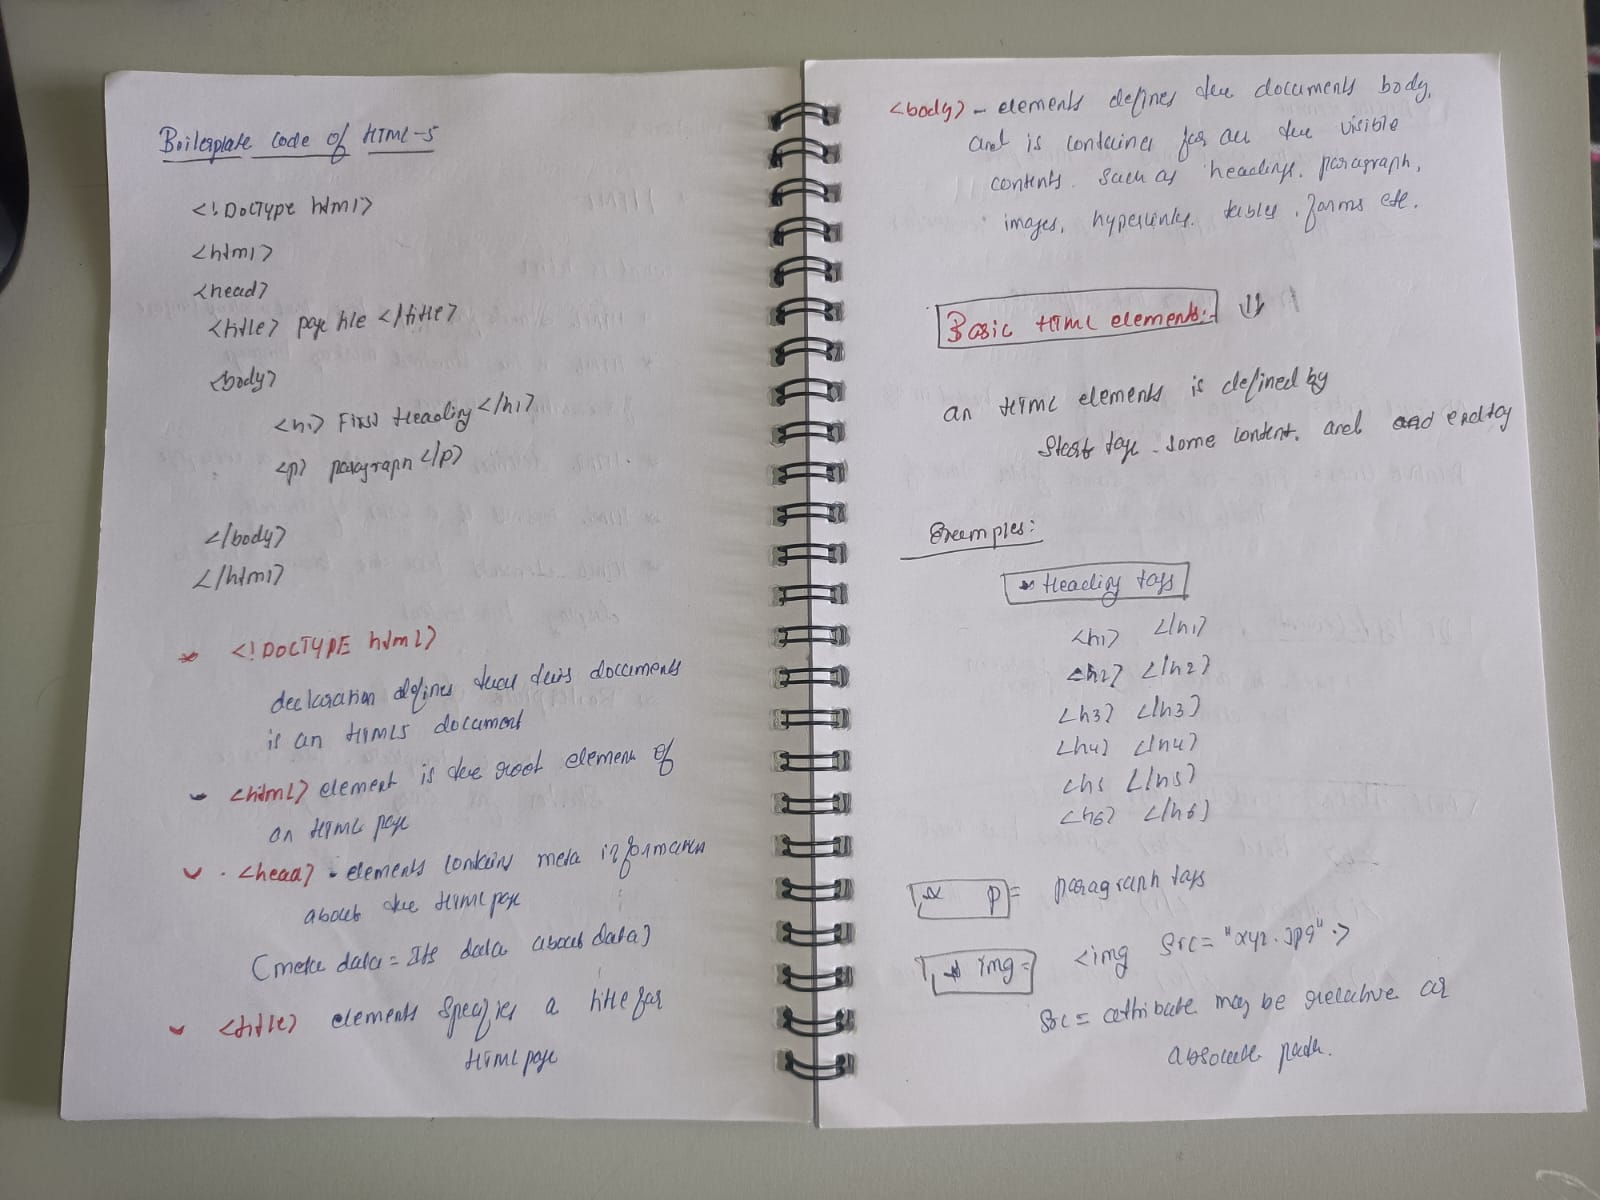 Boilerplate code of HTML-5
<!DocType html>
<html>
<head>
<title> page title </title>
<body>
<h1> First Heading </h1>
<p> paragraph </p>
</body>
</html>
* <!DOCTYPE html>
declaration defines that this documents
is an HTML5 document
<html> element is the root element of
an HTML page
<head> - elements contains meta information
about the HTML page
(meta data = Its data about data)
<title> elements specifies a title for
HTML page
<body> - elements defines the documents body,
and is container for all the visible
contents. such as headings, paragraph,
images, hyperlinks, tables, forms etc.
Basic HTML elements:-
an HTML elements is defined by
Start tag. some content. and end tag
Examples:
* Heading tags
<h1> </h1>
<h2> </h2>
<h3> </h3>
<h4> </h4>
<h5 </h5>
<h6> </h6>
* p = paragraph tags
* img = <img src= "xyz.jpg" >
Src = attribute may be relative or
absolute path.